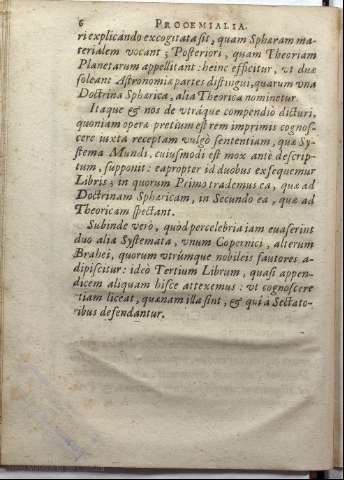 6 PROOEMIALIA.
ri explicando excogitata sit, quam Sphæram ma-
terialem vocant; Posteriori, quam Theoriam
Planetarum appellitant: heinc efficitur, vt duæ
soleant Astronomiæ partes distingui, quarum vna
Doctrina Sphærica, alia Theorica nominetur.
Itaque & nos de vtráque compendiò dicturi,
quoniam operæ pretium est rem imprimis cognos-
cere iuxta receptam vulgò sententiam, quæ Sy-
stema Mundi, cuiusmodi est mox antè descrip-
tum, supponit: eapropter id duobus exsequemur
Libris; in quorum Primo trademus ea, quæ ad
Doctrinam Sphæricam, in Secundo ea, quæ ad
Theoricam spectant.
Subinde verò, quòd percelebria iam euaserint
duo alia Systemata, vnum Copernici, alterum
Brahei, quorum vtrúmque nobileis fautores a-
dipiscitur: ideò Tertium Librum, quasi appen-
dicem aliquam hisce attexemus: vt cognoscere
etiam liceat, quænam illa sint, & qui à Sectato-
ribus defendantur.